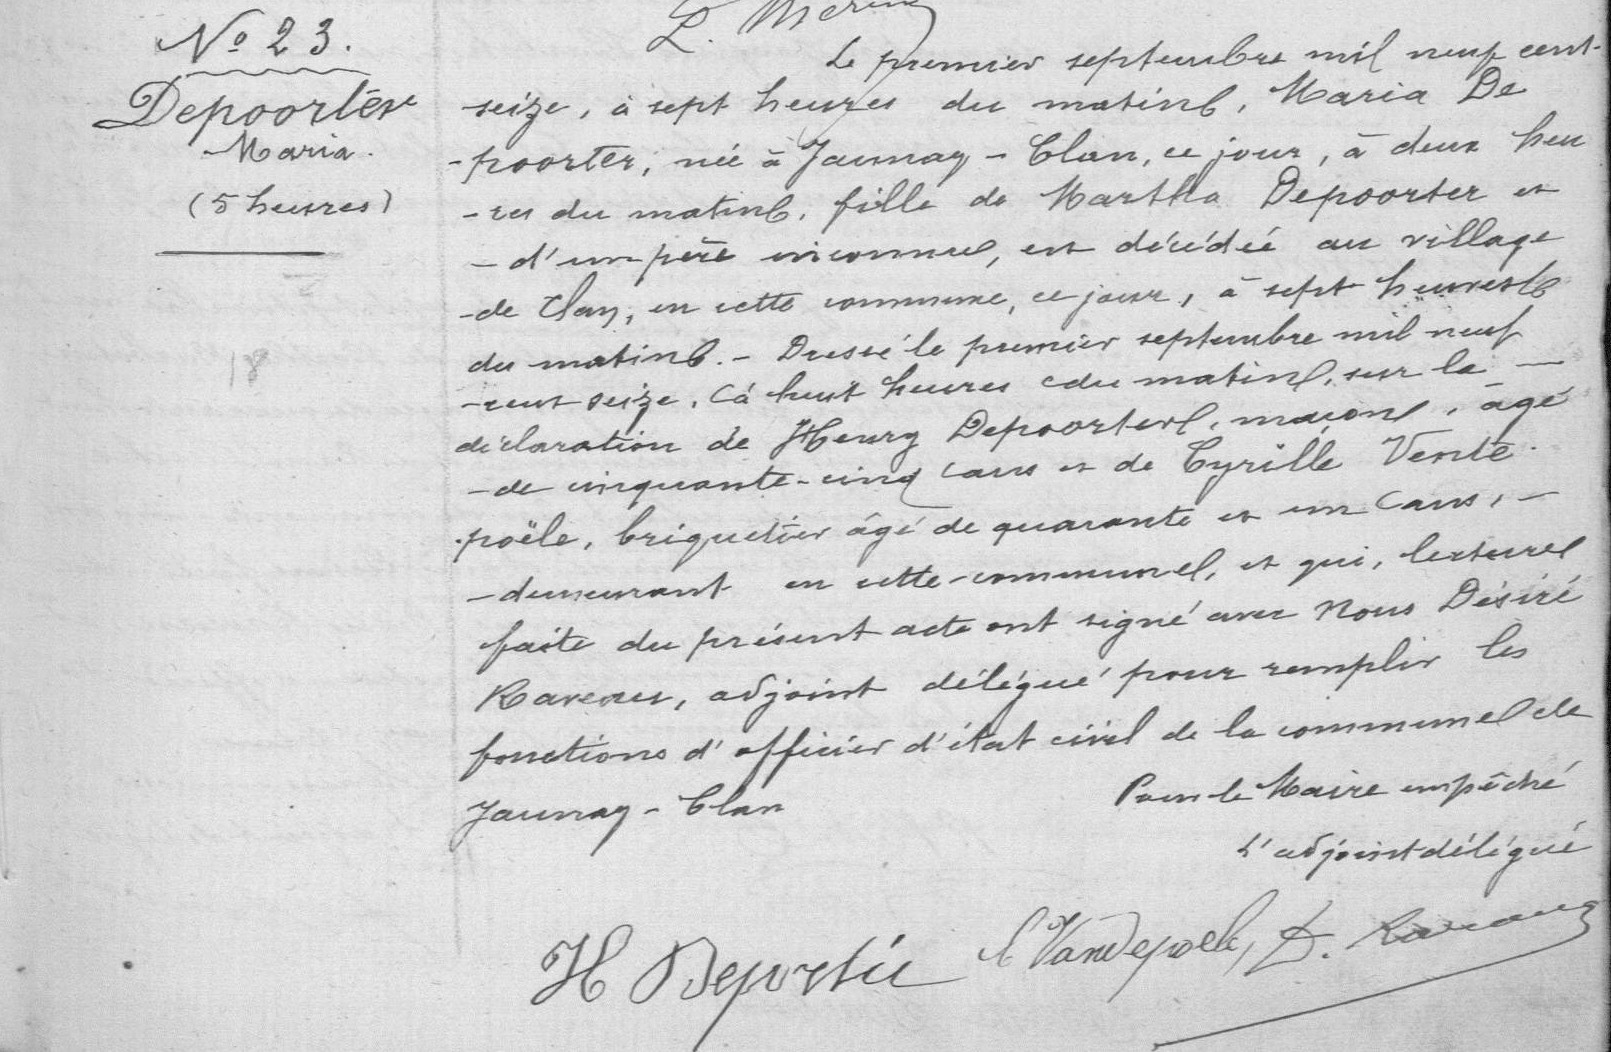 L. Merin
No 23.
Depoorter
Maria.
(5 heures)
18
Le premier septembre mil neuf cent-
seize, à sept heures du matin, Maria De
-poorter, née à Jaunay-Clan, ce jour, à deux heu
-res du matin, fille de Martha Depoorter et
-d'un père inconnu, est décédée au village
-de Clan, en cette commune, ce jour, à sept heures
du matin.- Dressé le premier septembre mil neuf
-cent seize, à huit heures du matin, sur la -
déclaration de Henry Depoorter, maçon, âgé
-de cinquante-cinq ans et de Cyrille Vente
-poële, briquetier âgé de quarante et un ans, -
-demeurant en cette commune, et qui, lecture
faite du présent acte ont signé avec Nous Désiré
adjoint délégué pour remplir les
fonctions d'officier d'état civil de la commune de
Jaunay-Clan
Pour le Maire empêché
L'adjoint délégué
H Deportéie C Vandepoele, D.